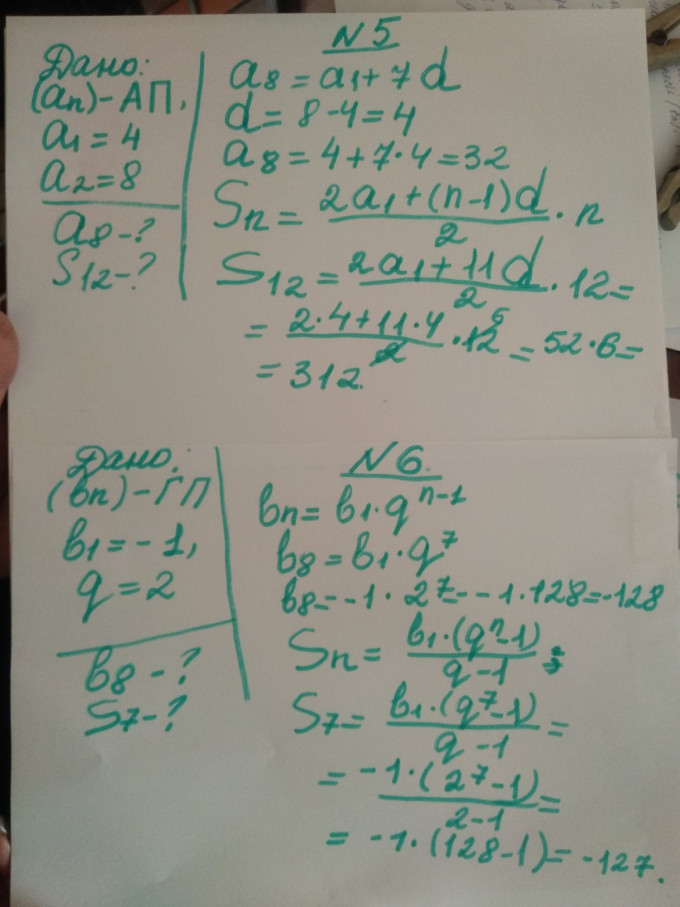 N5
Дано:
(an) - АП,
a1 = 4
a2 = 8
a8 - ?
S12 - ?
a8 = a1 + 7d
d = 8 - 4 = 4
a8 = 4 + 7·4 = 32
Sn = (2a1 + (n-1)d)/2 · n
S12 = (2a1 + 11d)/2 · 12 =
= (2·4 + 11·4)/2 · 12 6 = 52·6 =
= 312.
N6.
Дано:
(bn) - ГП
b1 = -1,
q = 2
b8 - ?
S7 - ?
bn = b1·q^(n-1)
b8 = b1·q^7
b8 = -1 · 2^7 = -1·128 = -128
Sn = (b1·(q^n-1))/(q-1) ;
S7 = (b1·(q^7-1))/(q-1) =
= (-1·(2^7-1))/(2-1) =
= -1·(128-1) = -127.